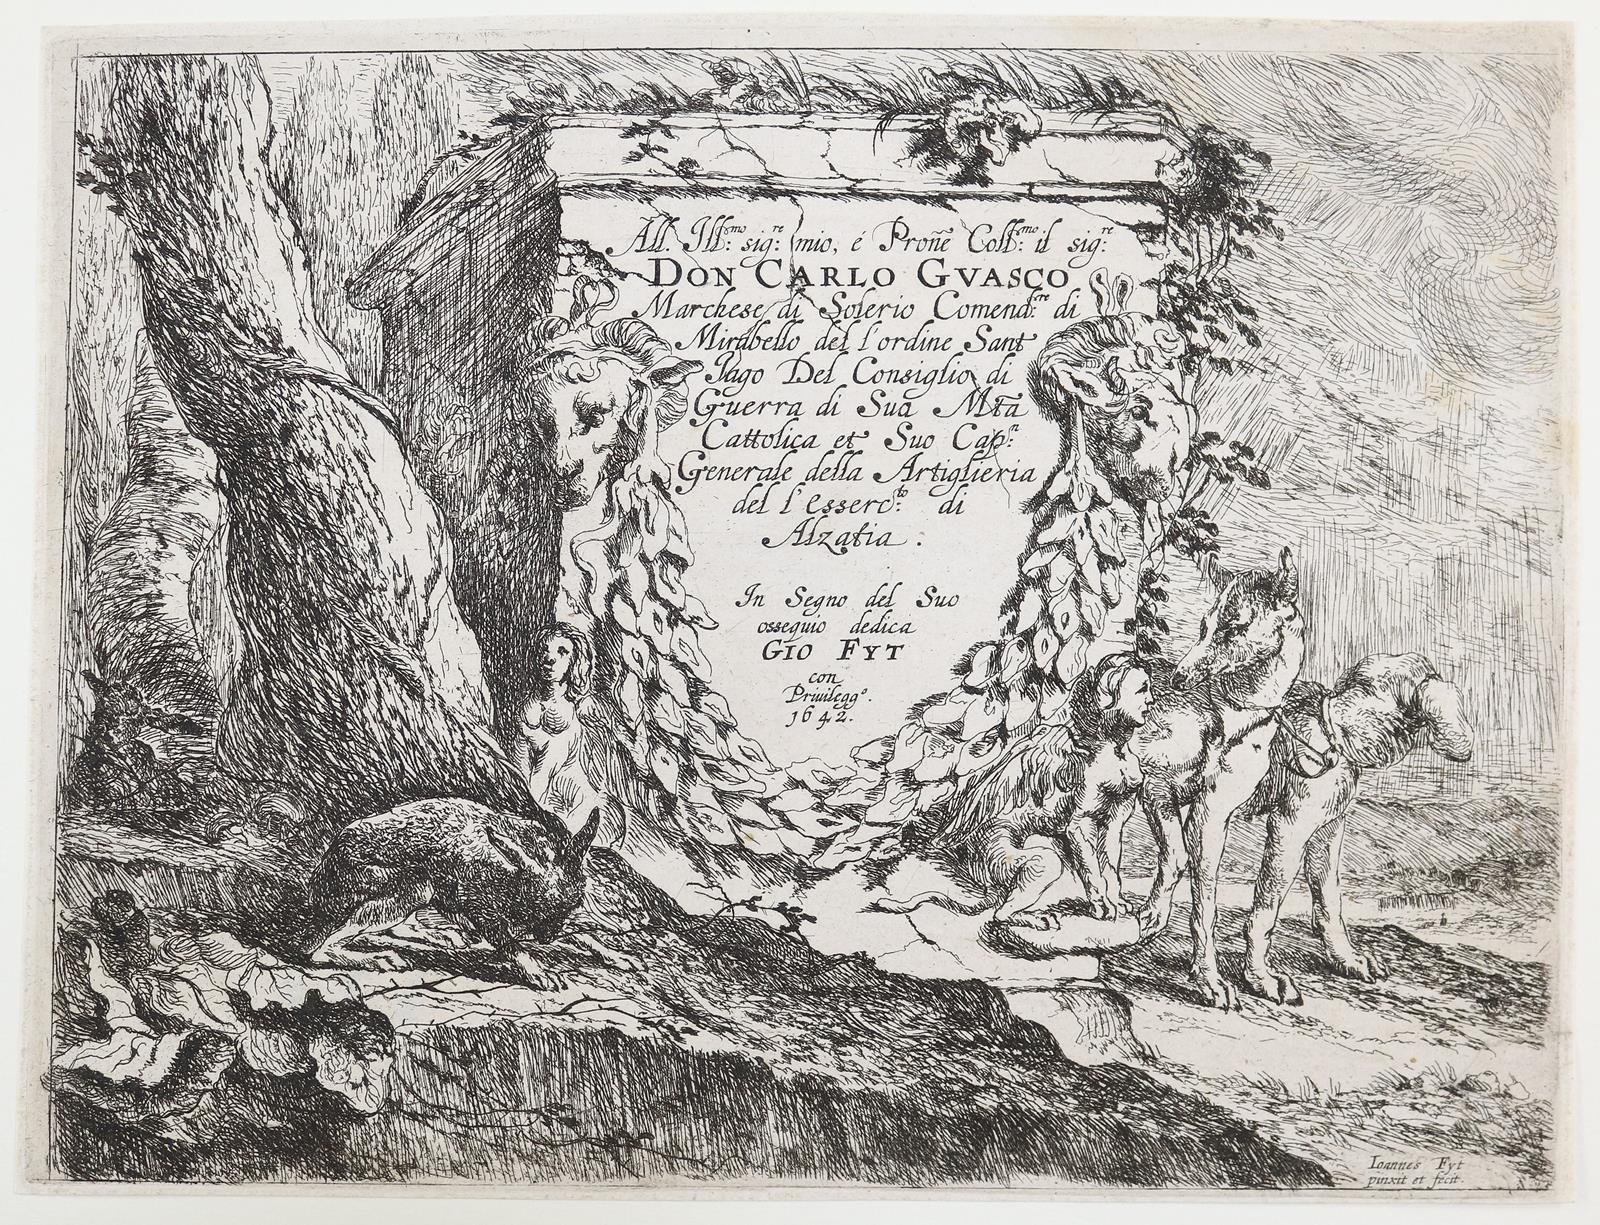 All. Ill.mo sig.re mio, é Proñe Coll.mo il sig.re
DON CARLO GVASCO
Marchese di Solerio Comend.re di
Mirabello del l'ordine Sant
Jago Del Consiglio di
Guerra di Sua Mtà
Cattolica et Suo Cap.n
Generale della Artiglieria
del l'esserc.to di
Alzatia.
In Segno del Suo
ossequio dedica
GIO FYT
con
Priuilegg.o
1642.
Ioannes Fyt
pinxit et fecit